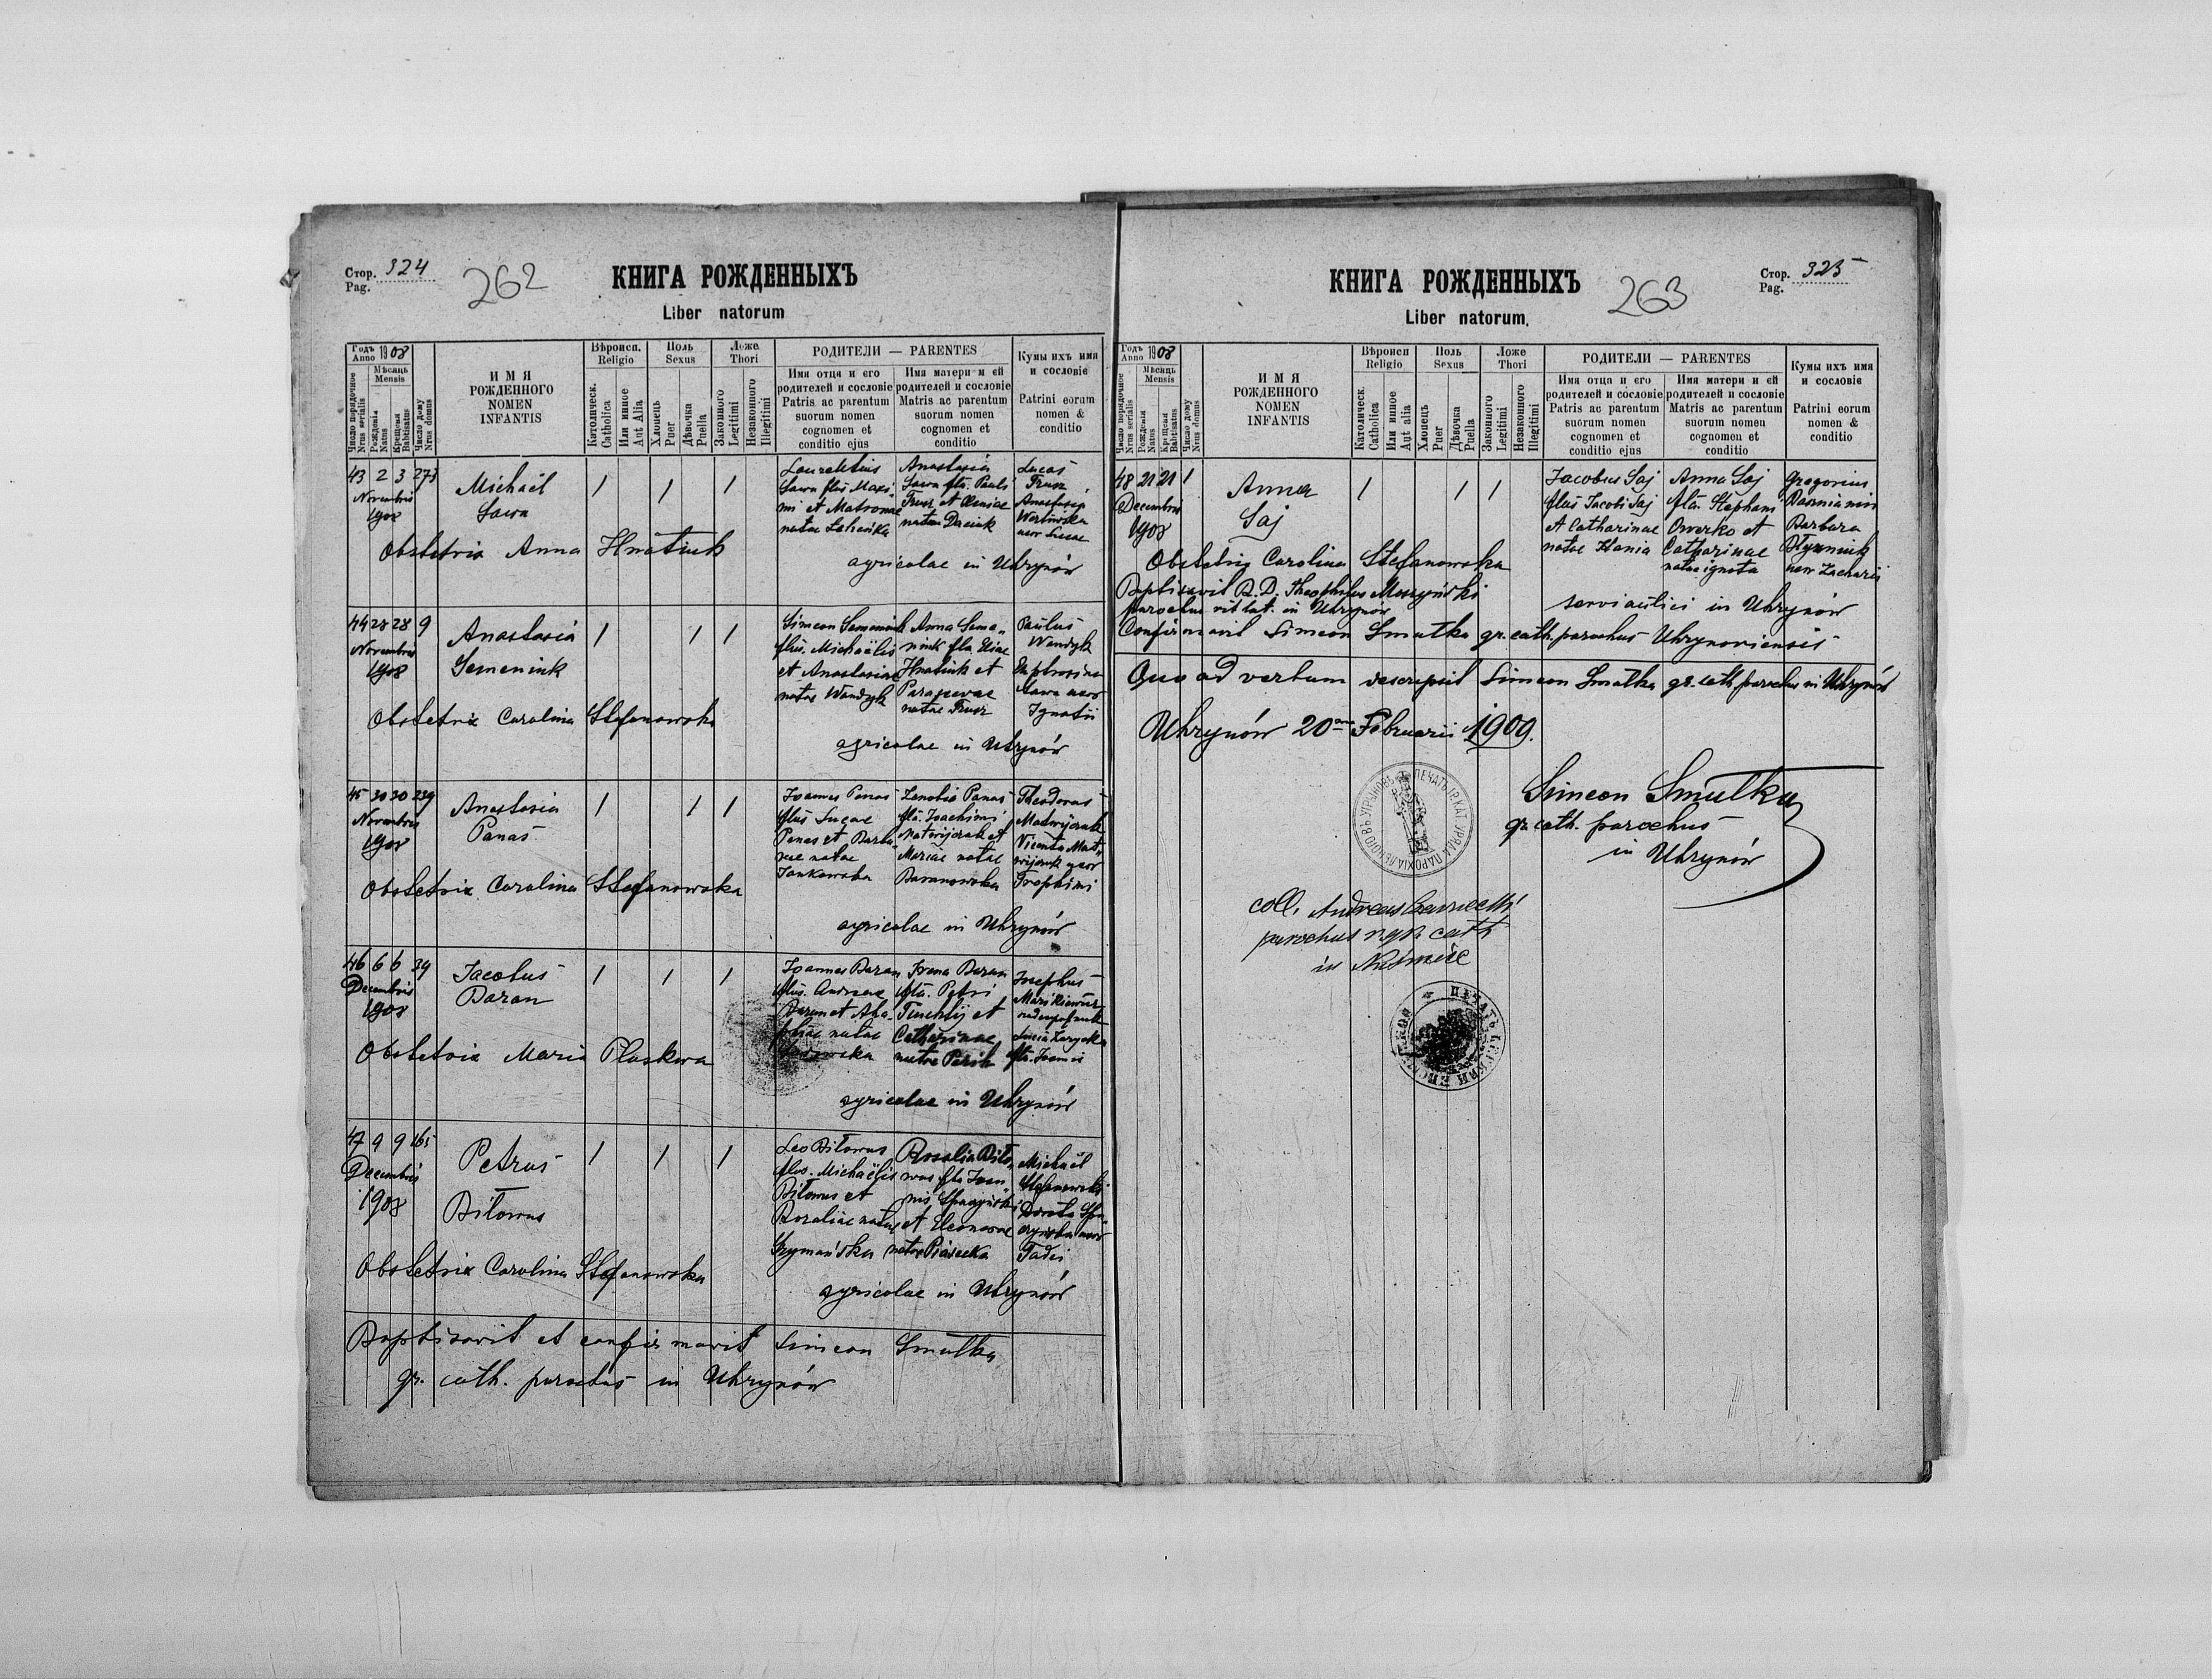 Стор. 324
Pag.
262
КНИГА РОЖДЕННЫХЪ
Liber natorum
Годъ
Anno 1908
Мѣсяць
Mensis
Число порядочное
Nrus serialis
Рожденія
Natus
Крещенія
Babtisatus
Число дому
Nrus domus
ИМЯ
РОЖДЕННОГО
NOMEN
INFANTIS
Вѣроисп.
Religio
Католическ.
Catholica
Или инное
Aut Alia
Поль
Sexus
Хлопець
Puer
Дѣвочка
Puella
Ложе
Thori
Законного
Legitimi
Незаконного
Illegitimi
РОДИТЕЛИ — PARENTES
Имя отца и его
родителей и сословіе
Patris ac parentum
suorum nomen
cognomen et
conditio ejus
Имя матери и ей
родителей и сословіе
Matris ac parentum
suorum nomen
cognomen et
conditio
Кумы ихъ имя
и сословіе
Patrini eorum
nomen &
conditio
43 2 3 273
Novembris
1908
Michaël
Sawa
1 1 1
Laurentius
Sawa flius Maxi-
mi et Matronae
natae
Anastasia
Sawa flia. Pauli
Trusz et
natae Daciuk
Lucas
Trusz
Anastasia
uxor Lucae
Obstetrix Anna Hnatiuk
agricolae in Uhrynów
44 28 28 9
Novembris
1908
Anastasia
Semeniuk
1 1 1
Simeon Semeniuk
flius. Michaëlis
et Anastasiae
natae Wandzyk
Anna Seme-
niuk flia Eliae
Hnatiuk et
Parascevae
natae Trusz
Paulus
Wandzyk
Euphrosina
Sawa uxor
Ignatii
Obstetrix Carolina Stefanowska
agricolae in Uhrynów
45 30 30 239
Novembris
1908
Anastasia
Panas
1 1 1
Joannes Panas
flius Lucae
Panas et Barba-
rae natae
Jankowska
Zenobia Panas
flia. Joachimi
Matwijczuk et
Mariae natae
Baranowska
Theodorus
Matwijczuk
Vicenta Mat-
wijczuk uxor
Trophimi
Obstetrix Carolina Stefanowska
agricolae in Uhrynów
46 6 6 39
Decembris
1908
Jacobus
Baran
1 1 1
Joannes Baran
flius. Andreae
Baran et Aga-
phiae natae
Irena Baran
flia. Petri
et
Catharinae
natae
Josephus
Lucia
flia. Joannis
Obstetrix Maria Pluskwa
agricolae in Uhrynów
47 9 9 165
Decembris
1908
Petrus
Bilowus
1 1 1
Leo Bilowus
flius. Michaëlis
Bilowus et
Rosaliae natae
Szymańska
Rosalia Bilo-
wus flia Joan-
nis
et Eleonorae
natae Piasecka
Michaël
Stefanowski
Dorota
uxor
Tadei
Obstetrix Carolina Stefanowska
agricolae in Uhrynów
Baptisavit et confirmavit Simeon Smulka
gr. cath. parochus in Uhrynów
Стор. 325
Pag.
263
КНИГА РОЖДЕННЫХЪ
Liber natorum.
Годъ
Anno 1908
Мѣсяць
Mensis
Число порядочное
Nrus serialis
Рожденія
Natus
Крещенія
Babtisatus
Число дому
Nrus domus
ИМЯ
РОЖДЕННОГО
NOMEN
INFANTIS
Вѣроисп
Religio
Католическ
Catholica
Или инное
Aut alia
Поль
Sexus
Хлопець
Puer
Дѣвочка
Puella
Ложе
Thori
Законного
Legitimi
Незаконного
Illegitimi
РОДИТЕЛИ — PARENTES
Имя отца и его
родителей и сословіе
Patris ac parentum
suorum nomen
cognomen et
conditio ejus
Имя матери и ей
родителей и сословіе
Matris ac parentum
suorum nomen
cognomen et
conditio
Кумы ихъ имя
и сословіе
Patrini eorum
nomen &
conditio
48 21 21 1
Decembris
1908
Anna
Saj
1 1 1
Jacobus Saj
flius Jacobi Saj
et Catharinae
natae Hania
Anna Saj
flia. Stephani
Owerko et
Catharinae
natae ignota
Gregorius
Barbara
uxor Zacharii
Obstetrix Carolina Stefanowska
Baptisavit R. D. Theophilus
parochus rit lat. in Uhrynów
servi aulici in Uhrynów
Confirmavit Simeon Smulka gr. cath. parochus Uhrynoviensis
Quo ad verbum descripsit Simeon Smulka gr. cath. parochus in Uhrynów
Uhrynów 20 Februarii 1909.
Simeon Smulka
gr. cath. parochus
in Uhrynów
coll. Andreas
parochus r. gr. cath
in